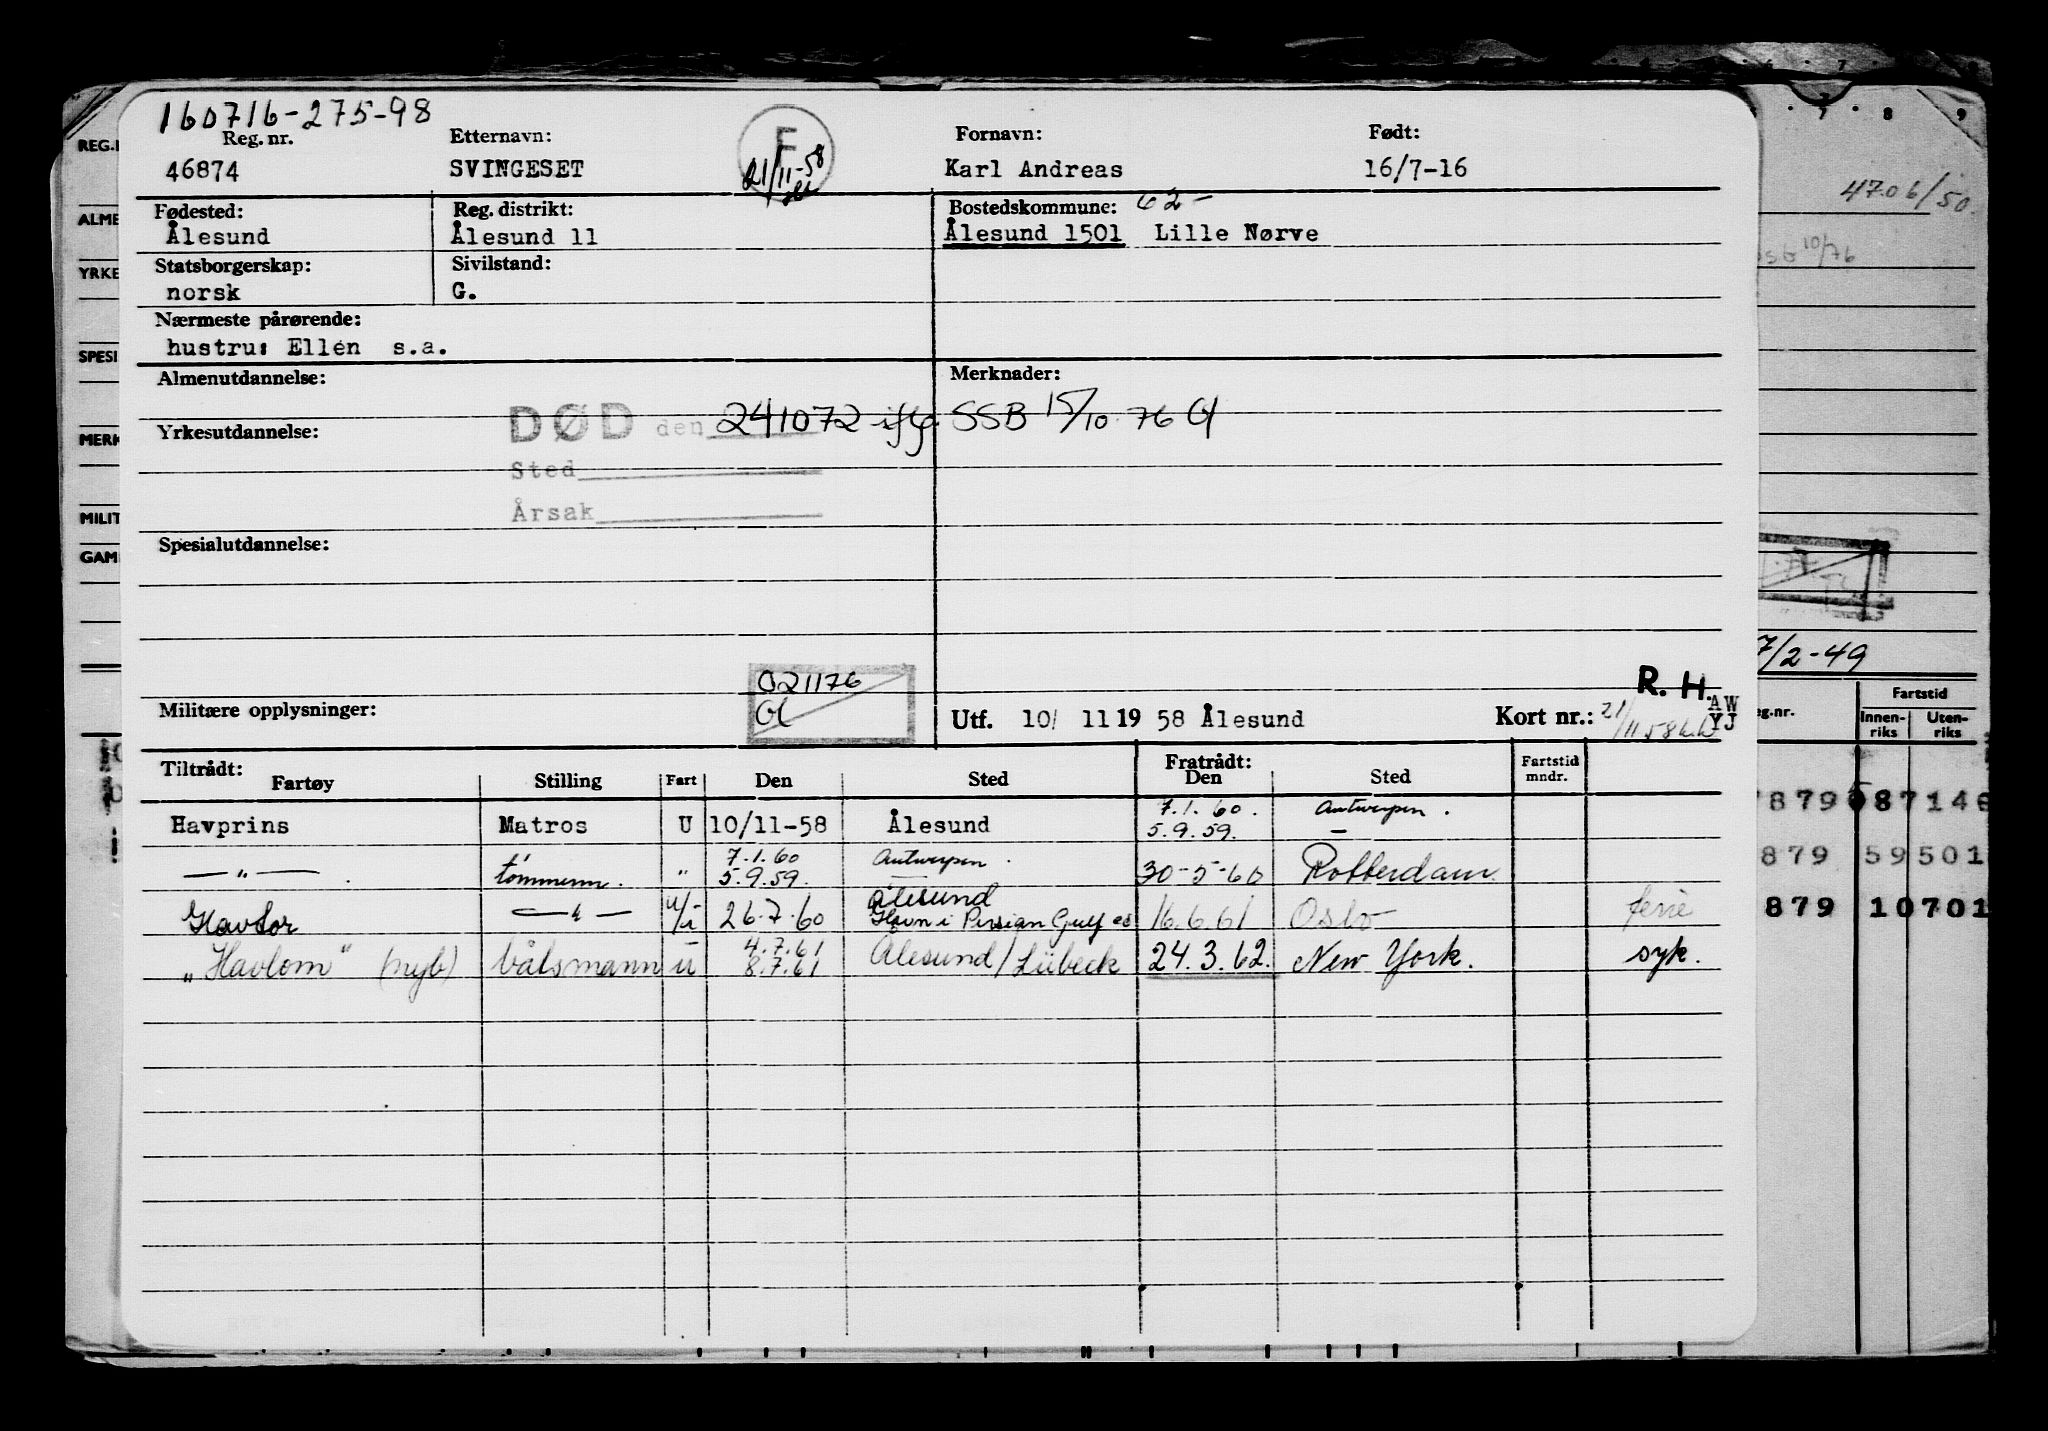 160716-275-98
Reg. nr. Etternavn: F Fornavn: Født:
46874 SVINGESET 21/11-58 Karl Andreas 16/7-16
Fødested: Reg. distrikt: Bostedskommune: 62-
Ålesund Ålesund 11 Ålesund 1501 Lille Nørve
Statsborgerskap: Sivilstand:
norsk G.
Nærmeste pårørende:
hustru: Ellen s.a.
Almenutdannelse: Merknader:
DØD den 241072 iflg. SSB 15/10-76 Gl
Yrkesutdannelse:
Sted
Årsak
Spesialutdannelse:
021176
Gl
R. H.
AW
Militære opplysninger: Utf. 10/ 11 19 58 Ålesund Kort nr.: 21/11 58 YJ
Tiltrådt: Fratrådt: Fartstid
Fartøy Stilling Fart Den Sted Den Sted mndr.
7.1.60. Antwerpen.
Havprins Matros U 10/11-58 Ålesund 5.9.59. —
7.1.60 Antwerpen.
— " — . tømmerm. " 5.9.59. — 30-5-60 Rotterdam.
Ålesund
Havtor — " — u/i 26.7.60 Havn i Persian Gulf 16.6.61 Oslo ferie
4.7.61
„Havlom" (nyb) båtsmann u 8.7.61 Ålesund/Lübeck 24.3.62. New York. syk.
REG.
ALME
YRKE
SPESI
MERK
MILIT
GAM
7 8 9
4706/50.
10/76
7/2-49
eg.nr. Fartstid
Innen-riks Uten-riks
879 87146
879 59501
879 10701